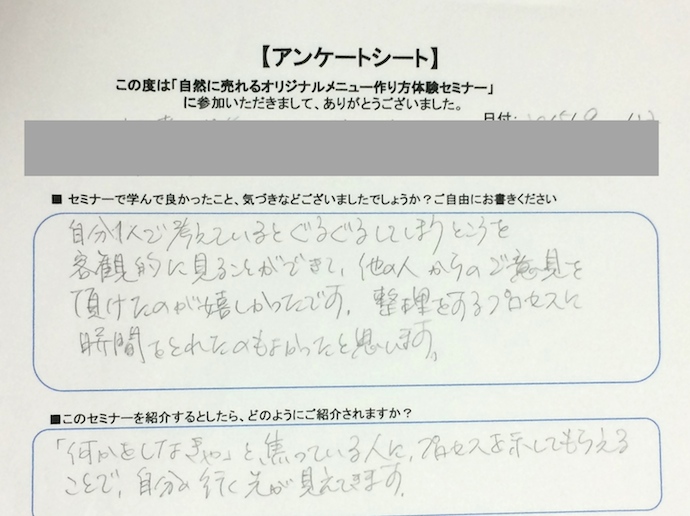 【アンケートシート】
この度は「自然に売れるオリジナルメニュー作り方体験セミナー」
に参加いただきまして、ありがとうございました。
日付:
■ セミナーで学んで良かったこと、気づきなどございましたでしょうか？ご自由にお書きください
自分1人で考えているとぐるぐるしてしまうところを
客観的に見ることができて、他の人からのご意見を
頂けたのが嬉しかったです。整理をするプロセスに
時間をとれたのもよかったと思います。
■このセミナーを紹介するとしたら、どのようにご紹介されますか？
「何かをしなきゃ」と焦っている人に、プロセスを示してもらえる
ことで、自分の行く先が見えてきます。